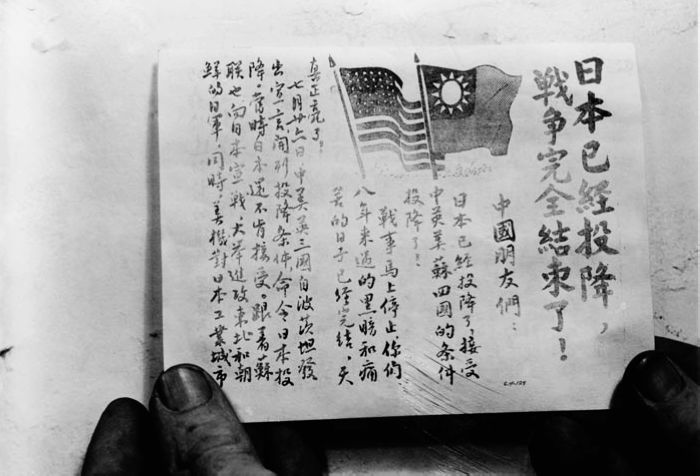 日本已經投降，
戦争完全結束了！
中國朋友們：
日本已經投降了，接受
中英美蘇四國的条件
投降了！
戰事馬上停止，你們
八年来過的黑暗和痛
苦的日子已經完結，天
真正亮了！
七月廿六日中美英三國自波茨坦發
出宣言開列投降条件，命令日本投
降。當時日本還不肯接受。跟着蘇
联也向日本宣戰，大举進攻東北和朝
鮮的日軍，同時美機對日本工業城市